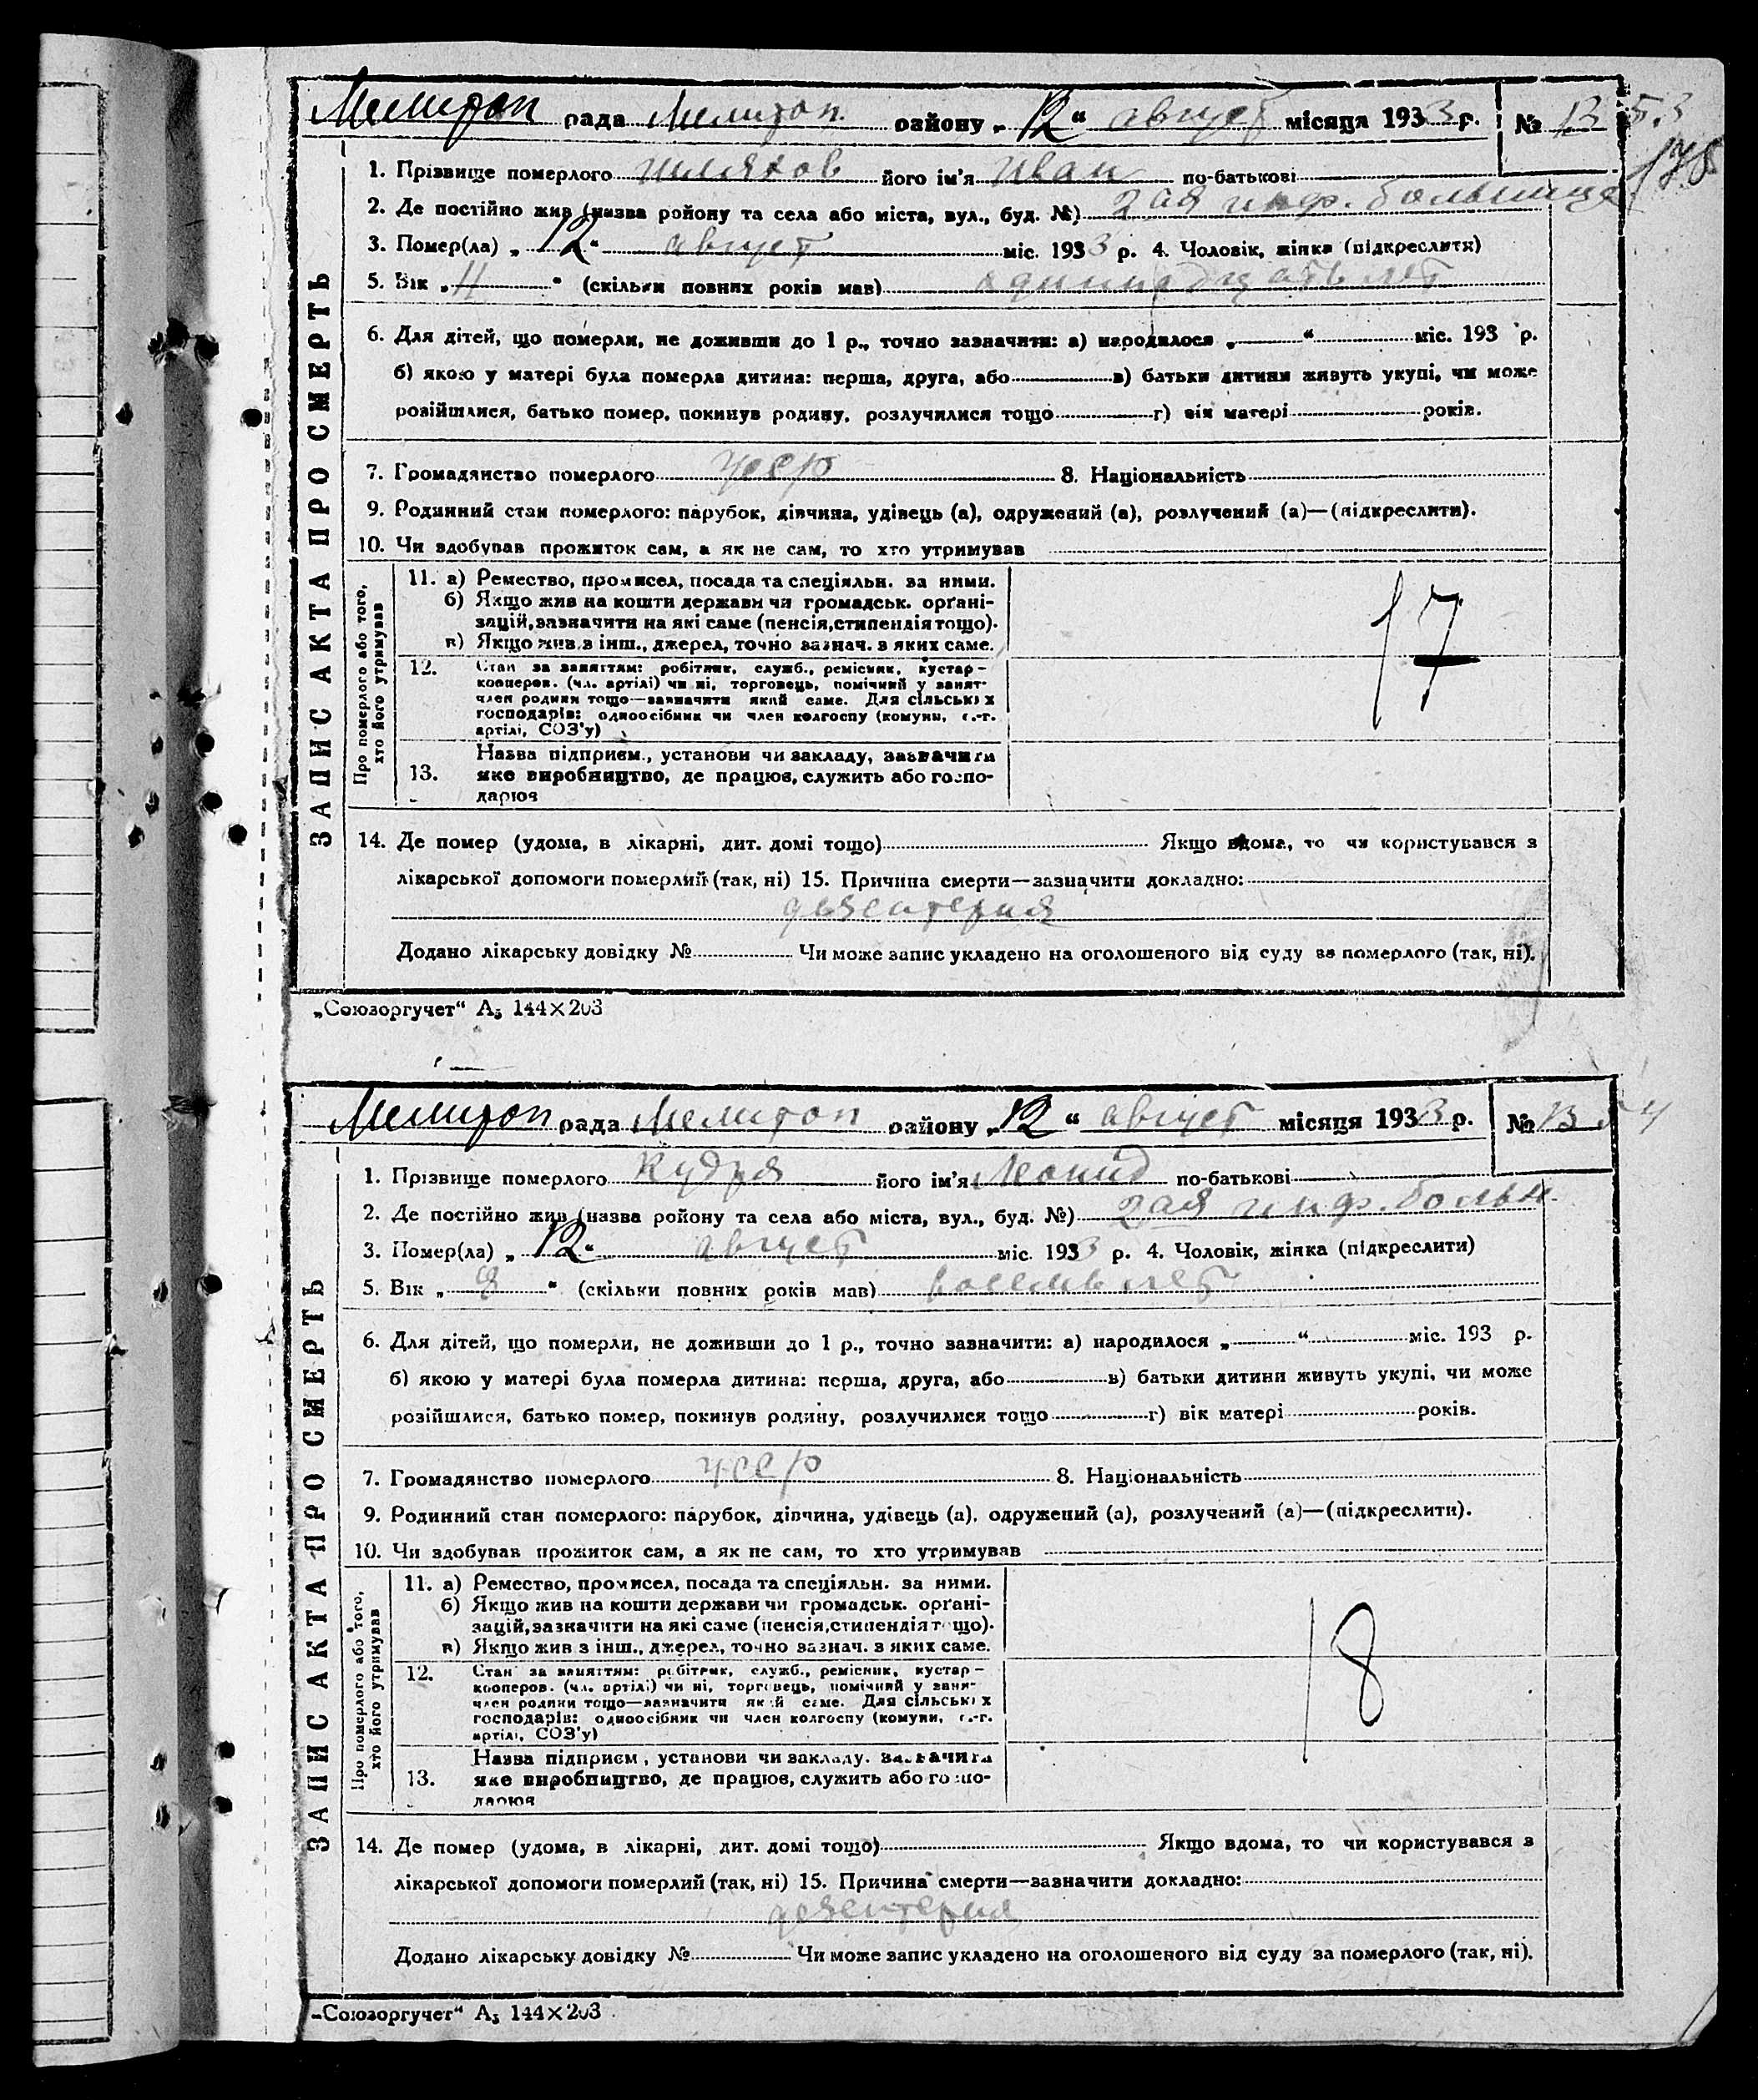 Мелитоп рада Мелитоп. району „12“ август місяця 1933 р. № 1353
178
1. Прізвище померлого Шляхов його ім'я Иван по-батькові
2. Де постійно жив (назва ройону та села або міста, вул., буд. №) 2ая инф. больница
3. Помер(ла) „12“ август міс. 1933 р. 4. Чоловік, жінка (підкреслити)
5. Вік „11“ (скільки повних років мав) одиннадцать лет
6. Для дітей, що померли, не доживши до 1 р., точно зазначити: а) народилося „ “ міс. 193 р.
б) якою у матері була померла дитина: перша, друга, або в) батьки дитини живуть укупі, чи може
розійшлися, батько помер, покинув родину, розлучилися тощо г) вік матері років.
7. Громадянство померлого усср 8. Національність
9. Родинний стан померлого: парубок, дівчина, удівець (а), одружений (а), розлучений (а)—(підкреслити).
10. Чи здобував прожиток сам, а як не сам, то хто утримував
ЗАПИС АКТА ПРО СМЕРТЬ
Про померлого або того, хто його утримував
11. а) Ремество, промисел, посада та спеціяльн. за ними.
б) Якщо жив на кошти держави чи громадськ. орґані-
зацій, зазначити на які саме (пенсія, стипендія тощо).
в) Якщо жив з інш., джерел, точно зазнач. з яких саме.
17
12. Стан за заняттям: робітник, служб., ремісник, кустар-
кооперов. (чл. артілі) чи ні, торговець, помічний у занят-
член родини тощо—зазначити який саме. Для сільських
господарів: одноосібник чи член колгоспу (комуни, с.-г.
артілі, СОЗ'у)
Назва підприєм., установи чи закладу, зазначити
13. яке виробництво, де працює, служить або госпо-
дарює
14. Де помер (удома, в лікарні, дит. домі тощо) Якщо вдома, то чи користувався з
лікарської допомоги померлий (так, ні) 15. Причина смерти—зазначити докладно:
дизентерия
Додано лікарську довідку № Чи може запис укладено на оголошеного від суду за померлого (так, ні).
„Союзоргучет“ А₅ 144×203
Мелитоп рада Мелитоп району „12“ август місяця 1933 р. № 1354
1. Прізвище померлого Кудря його ім'я Леонид по-батькові
2. Де постійно жив (назва ройону та села або міста, вул., буд. №) 2ая инф. больн.
3. Помер(ла) „12“ август міс. 1933 р. 4. Чоловік, жінка (підкреслити)
5. Вік „8“ (скільки повних років мав) восемь лет
6. Для дітей, що померли, не доживши до 1 р., точно зазначити: а) народилося „ “ міс. 193 р.
б) якою у матері була померла дитина: перша, друга, або в) батьки дитини живуть укупі, чи може
розійшлися, батько помер, покинув родину, розлучилися тощо г) вік матері років.
7. Громадянство померлого усср 8. Національність
9. Родинний стан померлого: парубок, дівчина, удівець (а), одружений (а), розлучений (а)—(підкреслити).
10. Чи здобував прожиток сам, а як не сам, то хто утримував
ЗАПИС АКТА ПРО СМЕРТЬ
Про померлого або того, хто його утримував
11. а) Ремество, промисел, посада та спеціяльн. за ними.
б) Якщо жив на кошти держави чи громадськ. орґані-
зацій, зазначити на які саме (пенсія, стипендія тощо).
в) Якщо жив з інш., джерел, точно зазнач. з яких саме.
18
12. Стан за заняттям: робітник, служб., ремісник, кустар-
кооперов. (чл. артілі) чи ні, торговець, помічний у занят-
член родини тощо—зазначити який саме. Для сільських
господарів: одноосібник чи член колгоспу (комуни, с.-г.
артілі, СОЗ'у)
Назва підприєм., установи чи закладу, зазначити
13. яке виробництво, де працює, служить або госпо-
дарює
14. Де помер (удома, в лікарні, дит. домі тощо) Якщо вдома, то чи користувався з
лікарської допомоги померлий (так, ні) 15. Причина смерти—зазначити докладно:
дизентерия
Додано лікарську довідку № Чи може запис укладено на оголошеного від суду за померлого (так, ні).
„Союзоргучет“ А₅ 144×203